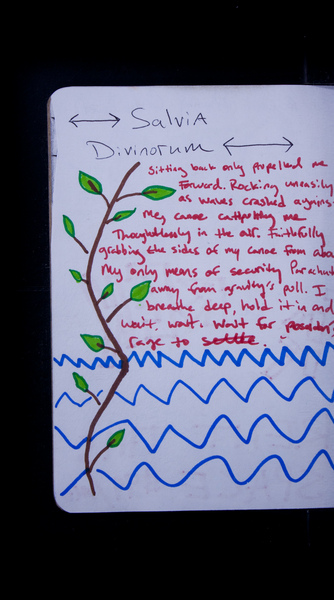 Salvia
Divinorum
Sitting back only propelled me
Forward. Rocking uneasily
as waves crashed against
me, canoe catapulting me
Thoughtlessly in the air. Faithfully
grabbing the sides of my canoe from abov
My only means of security Parachut
away from gravity's pull. I
breathe deep, hold it in and
wait. wait. wait for poseidon
rage to settle.